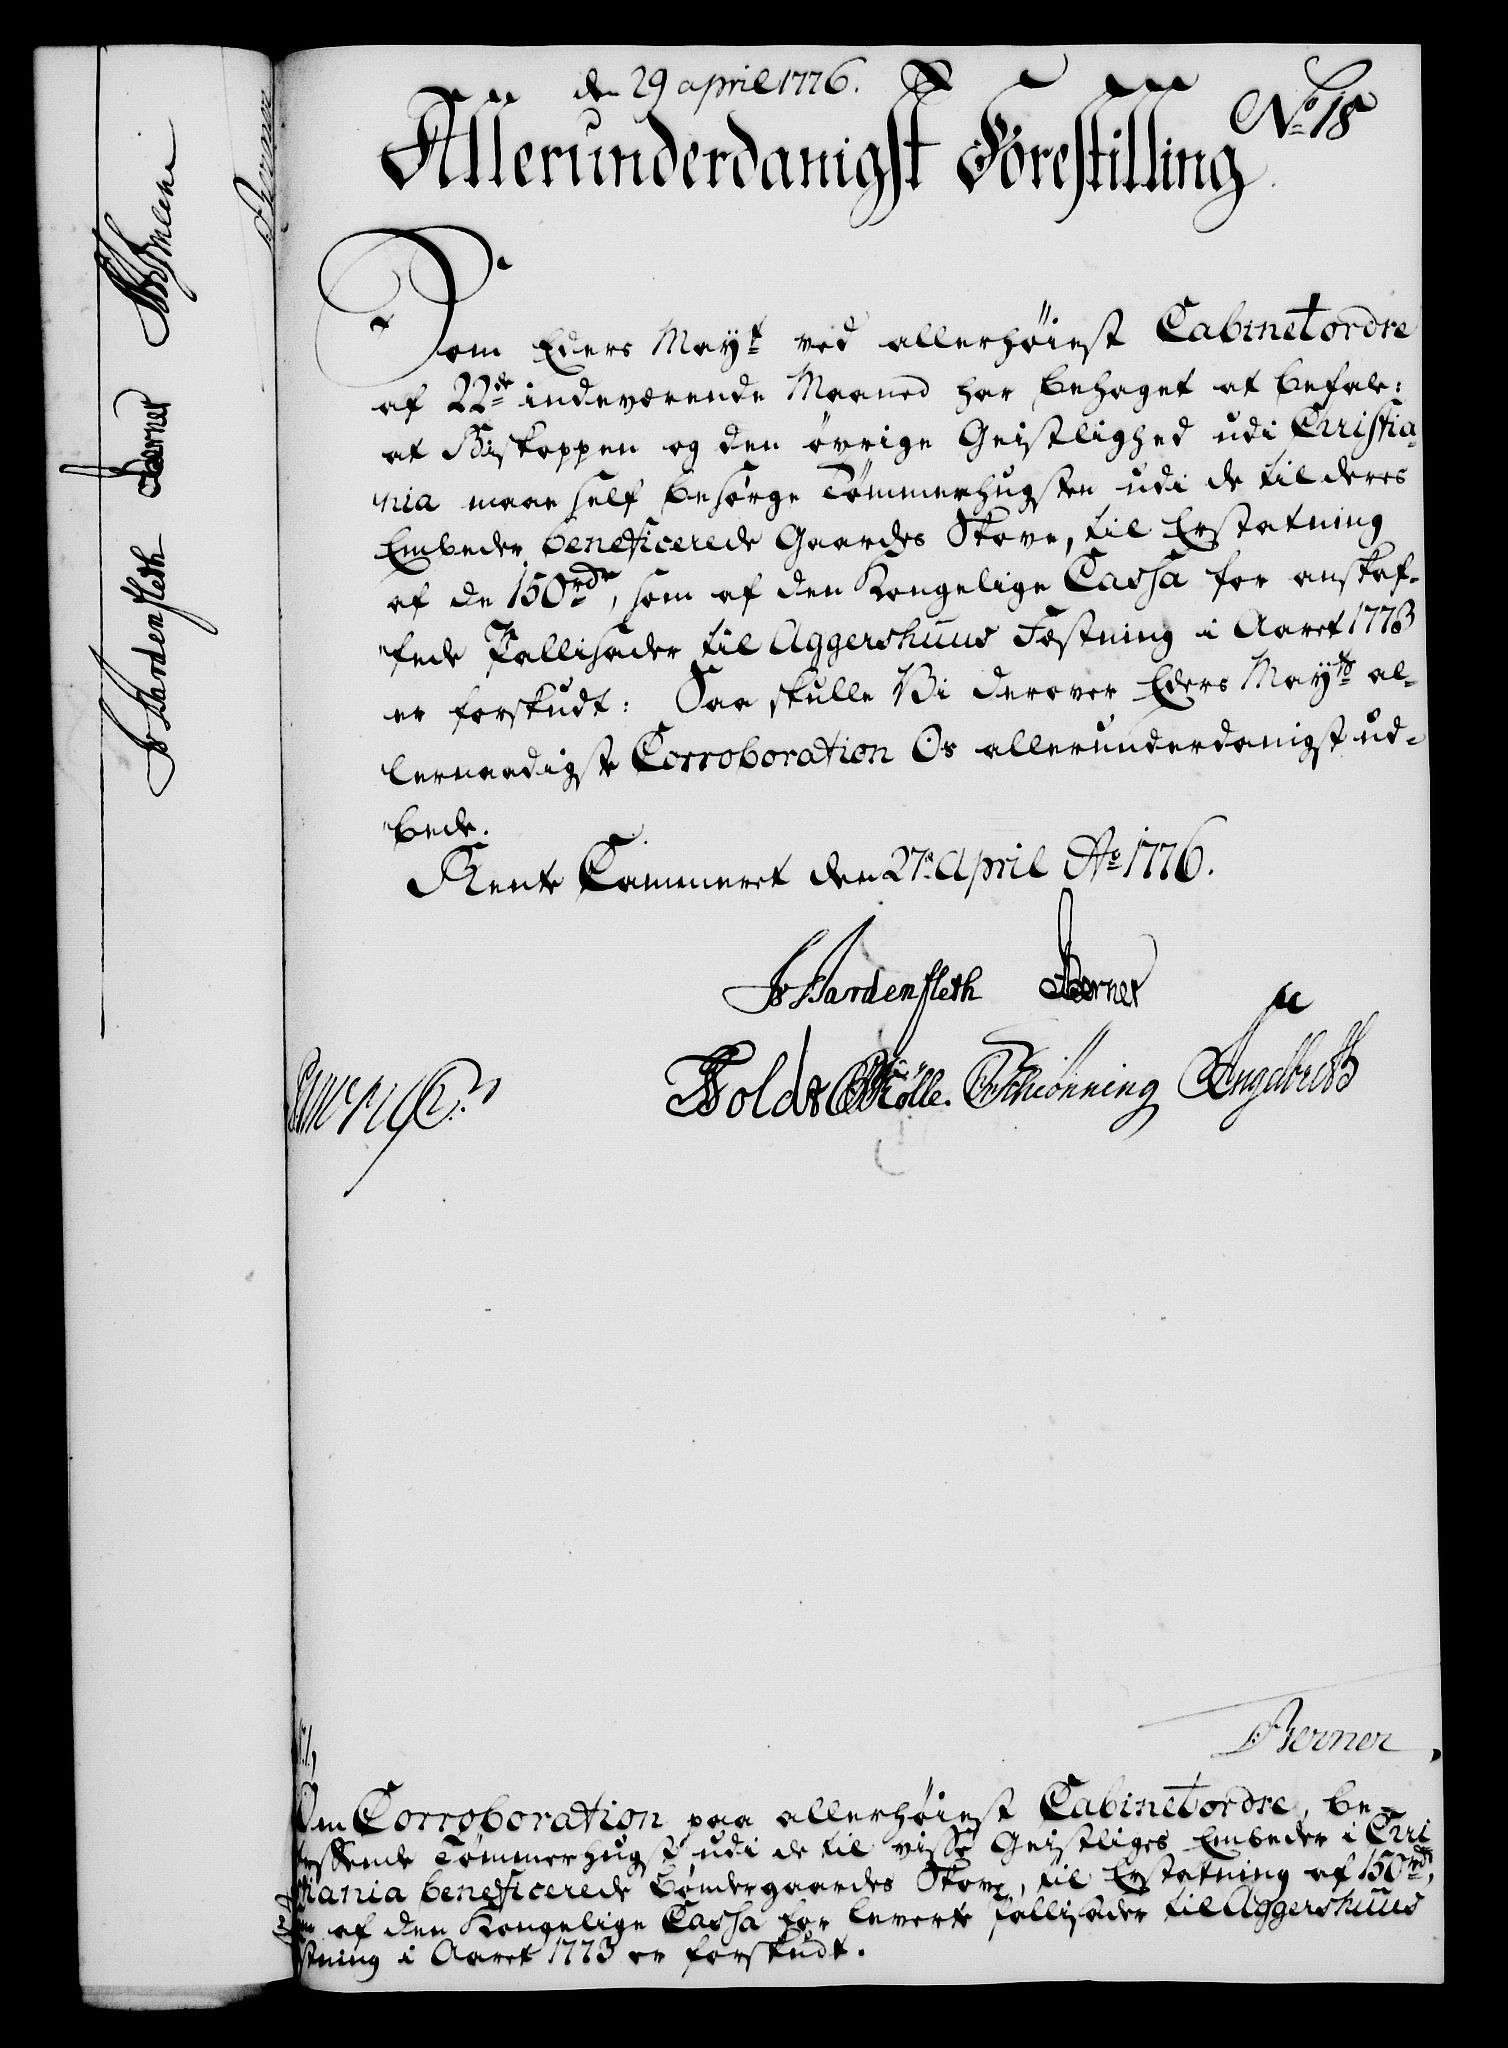 den 29 april 1776.
No 18
Allerunderdanigst Forestilling
Som Eders Mayt ved allerhöiest Cabinetordre
af 22de indeværende Maaned har behaget at befale:
at Biskoppen og den övrige Geistlighed udi Christia-
nia maae self besörge Tömmerhugsten udi de til deres
Embeder beneficerede Gaardes Skove, til Erstatning
af de 150rdr, som af den Kongelige Cassa for anskaf-
fede Pallisader til Aggershuus Fæstning i Aaret 1773
er forskudt: Saa skulle Vi derover Eders Mayts al-
lernaadigste Corroboration Os allerunderdanigst ud-
bede.
Rente Cammeret den 27de April Ao 1776.
JvHardenfleth Berner
Holdt Rölle. Schiönning Engelbreth
Berner
Om Corroboration paa allerhöiest Cabinetordre, be-
treffende Tömmerhugst udi de til visse Geistliges Embeder i Chri
stiania beneficerede Böndergaardes Skove, til Erstatning af 150rdr,
af den Kongelige Cassa for leverte Pallisader til Aggershuus
stning i Aaret 1773 er forskudt.
JvHardenfleth Berner
Berner